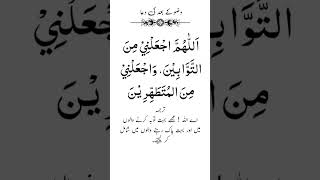 وضو کے بعد کی دعا
اَللّٰهُمَّ اجْعَلْنِيْ مِنَ
التَّوَّابِيْنَ، وَاجْعَلْنِيْ
مِنَ الْمُتَطَهِّرِيْنَ
ترجمہ
اے اللہ! مجھے بہت توبہ کرنے والوں
میں اور بہت پاک رہنے والوں میں شامل
کر دیجئے۔